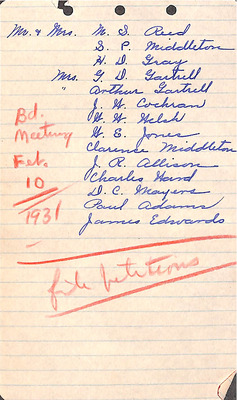 Mr. & Mrs. M. S. Reid
S. P. Middleton
H. D. Gray
Mrs. G. D. Gartrell
" Arthur Gartrell
J. H. Cochran
H. H. Welsh
H. S. Jones
Clarence Middleton
J. R. Allison
Charles Hand
D. C. Mayers
Paul Adams
James Edwards
Bd.
Meeting
Feb.
10
1931
file petitions